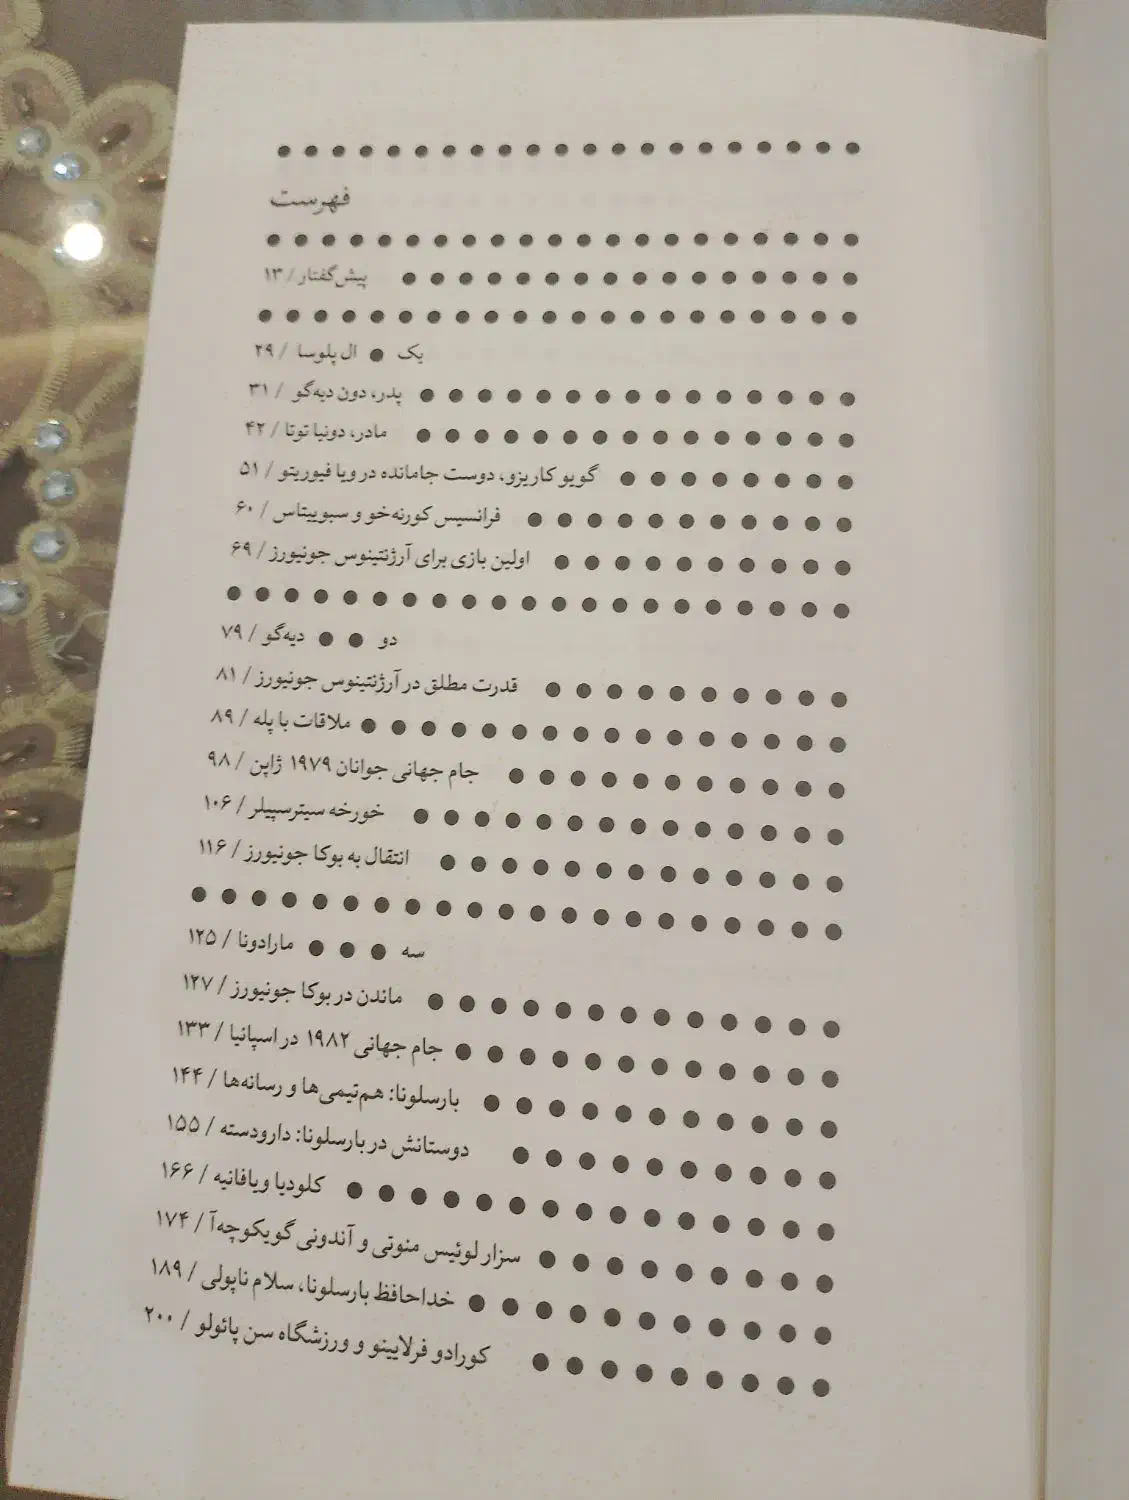 فهرست
پیش‌گفتار / ۱۳
یک ● ال پلوسا / ۲۹
پدر، دون دیه‌گو / ۳۱
مادر، دونیا توتا / ۴۲
گویو کاریزو، دوست جامانده در ویا فیوریتو / ۵۱
فرانسیس کورنه‌خو و سبوییتاس / ۶۰
اولین بازی برای آرژنتینوس جونیورز / ۶۹
دو ● ● دیه‌گو / ۷۹
قدرت مطلق در آرژنتینوس جونیورز / ۸۱
ملاقات با پله / ۸۹
جام جهانی جوانان ۱۹۷۹ ژاپن / ۹۸
خورخه سیترسپیلر / ۱۰۶
انتقال به بوکا جونیورز / ۱۱۶
سه ● ● ● مارادونا / ۱۲۵
ماندن در بوکا جونیورز / ۱۲۷
جام جهانی ۱۹۸۲ در اسپانیا / ۱۳۳
بارسلونا: هم‌تیمی‌ها و رسانه‌ها / ۱۴۴
دوستانش در بارسلونا: دارودسته / ۱۵۵
کلودیا ویافانیه / ۱۶۶
سزار لوئیس منوتی و آندونی گویکوچه‌آ / ۱۷۴
خداحافظ بارسلونا، سلام ناپولی / ۱۸۹
کورادو فرلایینو و ورزشگاه سن پائولو / ۲۰۰